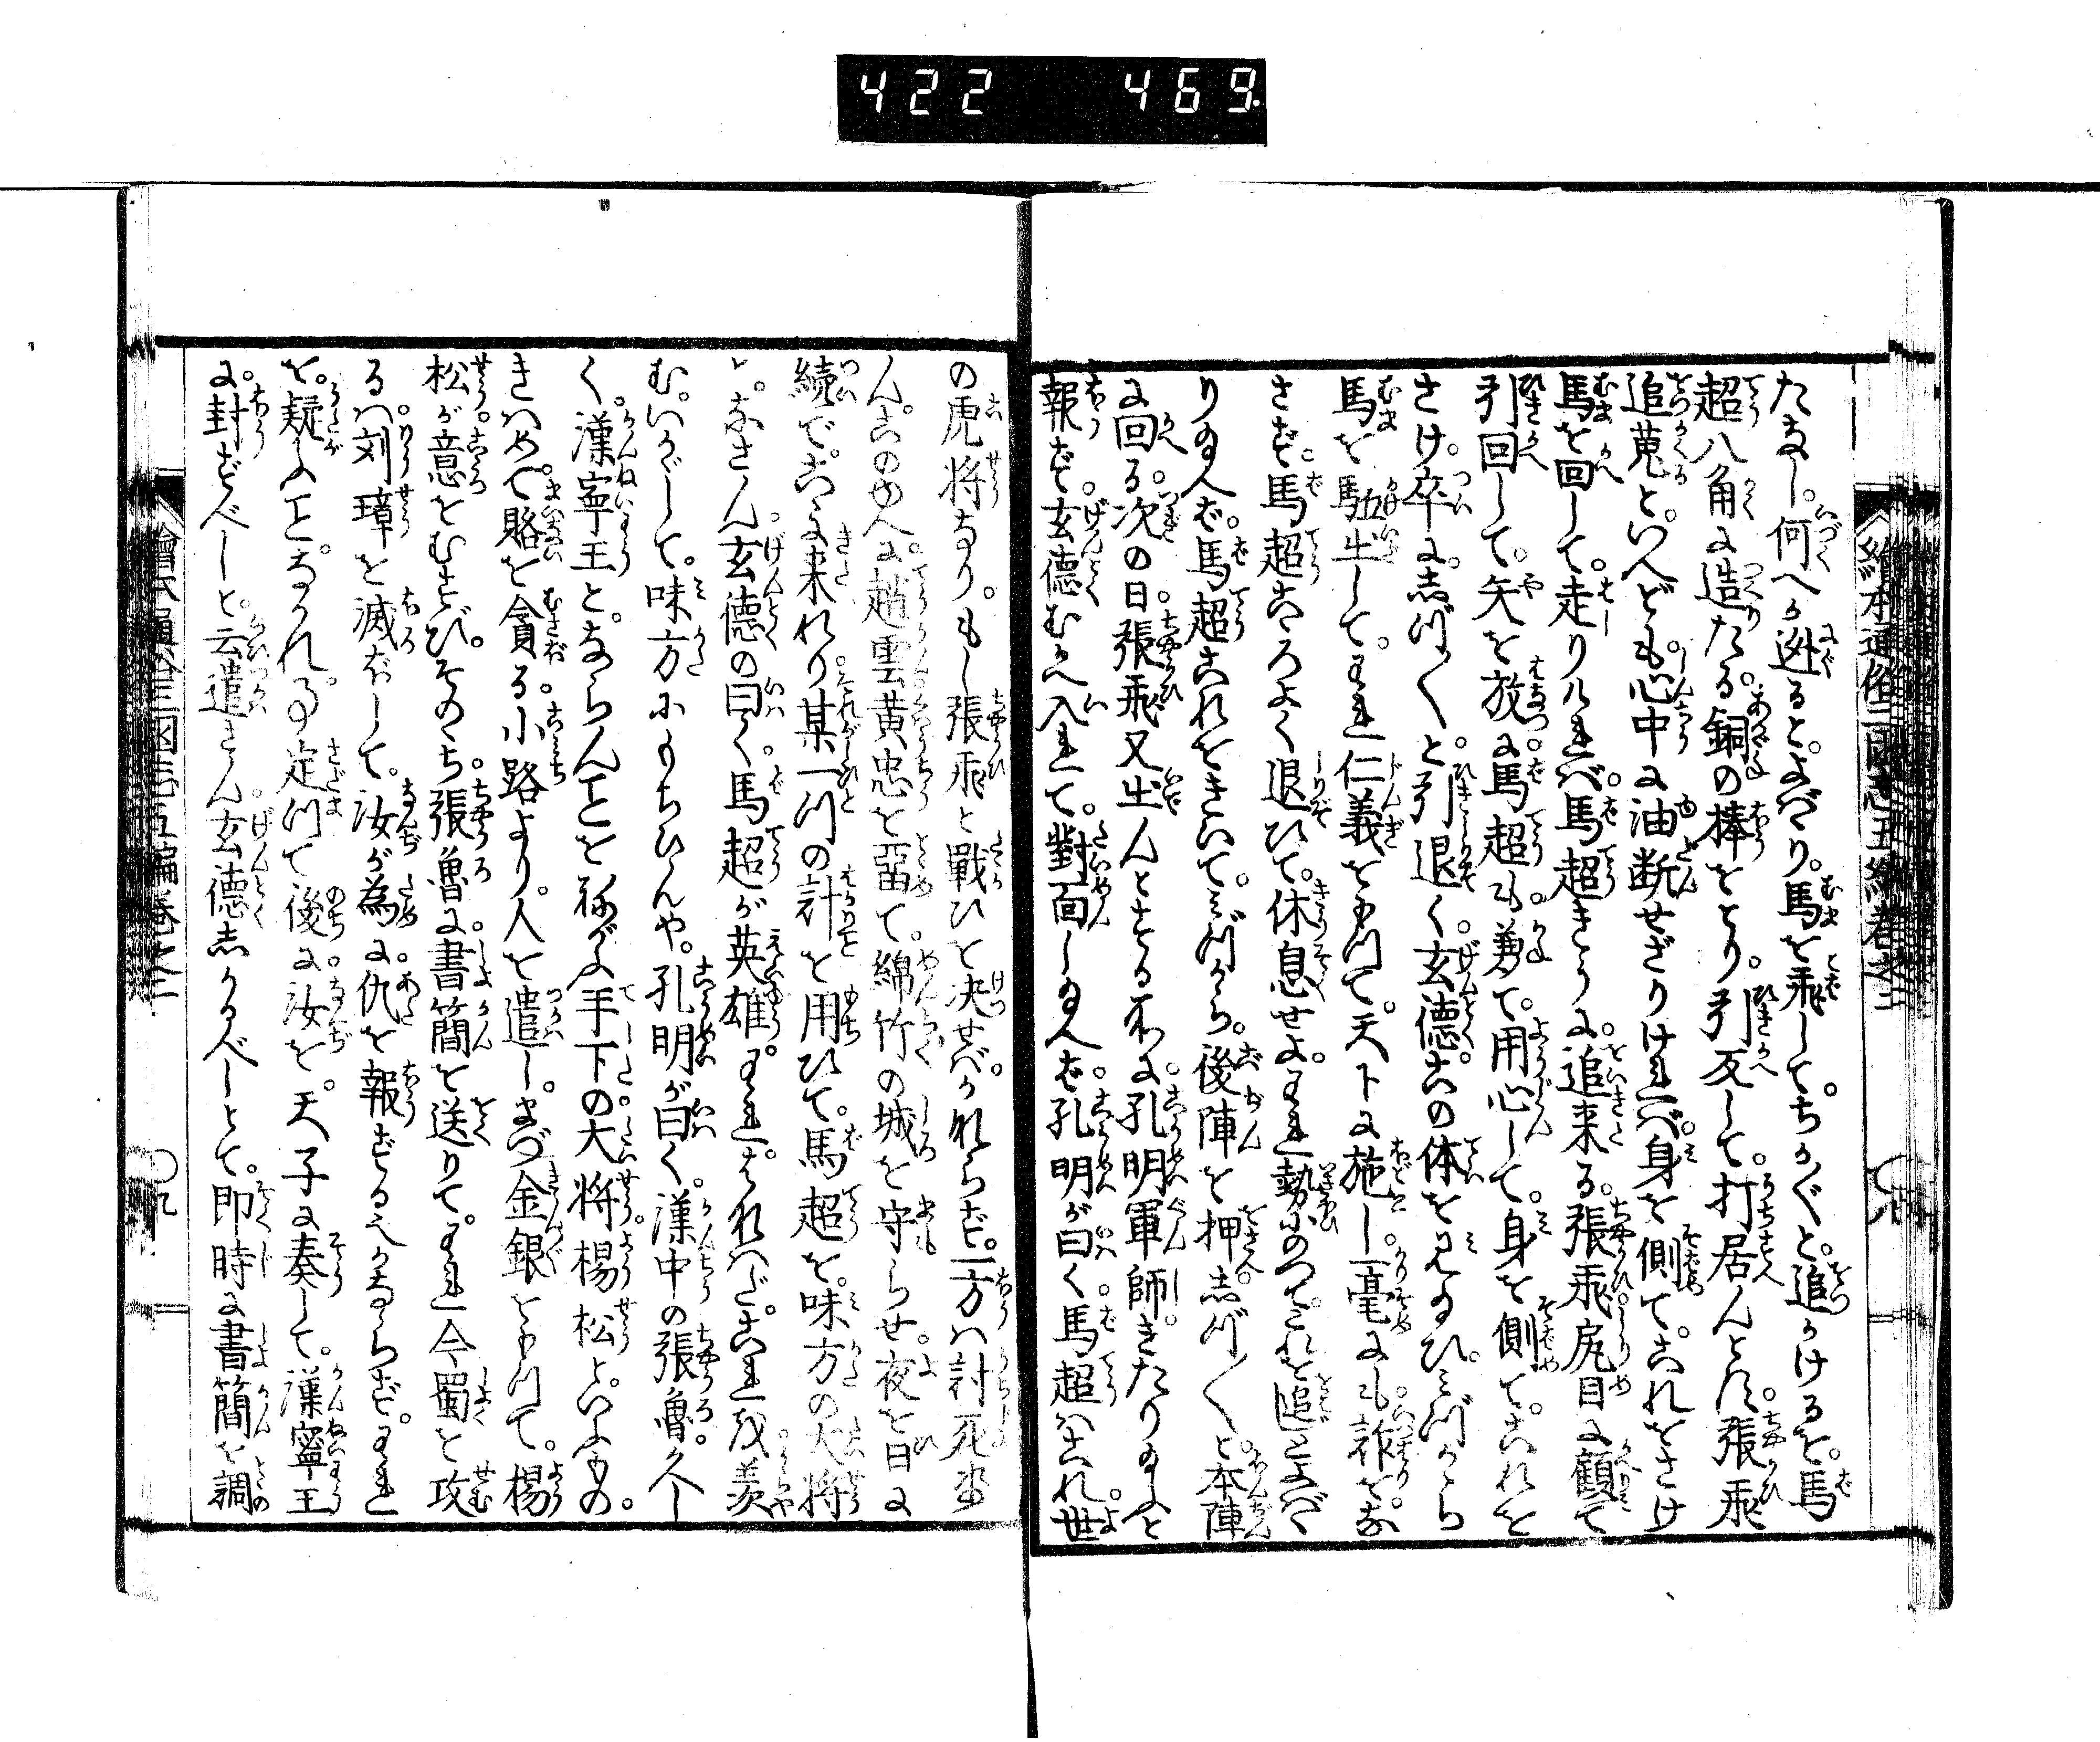 422 469.
繪本通俗三國志五編巻之三
八
たまし。何へか逃ると。よばゝり。馬を飛して。ちかぐと。追かけるを。馬
超八角に造たる。銅の棒をとり。引反して。打居んとす。張飛
追蒐といへども。心中に油断せざりければ。身を側て。これをさけ
馬を回して。走りければ。馬超きうに。追来る。張飛。尻目に顧て
引回して。矢を放つに。馬超も兼て。用心して。身を側て。これを
さけ。卒にしづ〳〵と。引退く。玄德。この体を見給ひ。みづから
馬を駈出して。われ仁義をもつて。天下に施し。一毫にも。詐をな
さず。馬超こゝろよく退ひて。休息せよ。われ勢のつてこれを追じとよばゝ
り給へば。馬超これをきいて。みづから。後陣を押。しづ〳〵と。本陣
に回る。次の日。張飛又出んとする所に。孔明軍師。きたり給ふと
報ず。玄德むかへ入れて。對面し給へば。孔明が曰く。馬超はこれ世
の虎將なり。もし張飛と戰ひを決せば。かならず一方は討死せ
ん。このゆへに。趙雲黄忠を畱て。綿竹の城を守らせ。夜を日に
続で。こゝに来れり。某一つの計を用ひて。馬超を。味方の大將
と。なさん。玄德の曰く。馬超が英雄。われはなはだ。これを羨
む。いかゞして。味方にもちひんや。孔明が曰く。漢中の張魯。久し
く。漢寧王と。ならんことをねがふ。手下の大將。楊松といふもの。
きはめて。賂を貪る。小路より。人を遣し。まづ金銀をもつて。楊
松が意をむすび。そのゝち。張魯に。書簡を送りて。われ今蜀を攻
るは。刘璋を滅ぼして。汝が為に。仇を報ずるにかならず。われ
を。疑ふことなかれ。事定つて後に。汝を。天子に奏して。漢寧王
に。封ずべしと。云遣さん。玄德しかるべしとて。即時に書簡を調
繪本通俗三國志五編巻之三
九